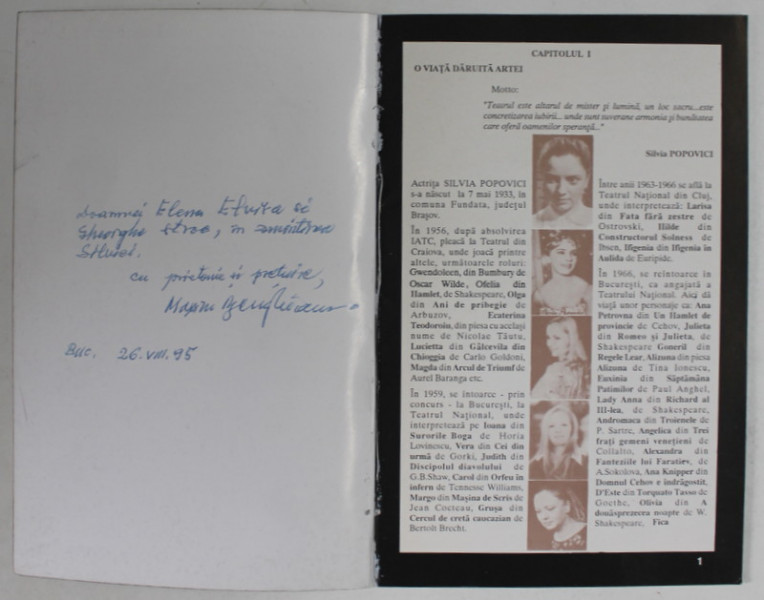 Doamnei Elena
Gheorghe în amintirea
Silviei.
cu prietenie și prețuire,
Buc. 26.VIII.95
CAPITOLUL I
O VIAȚĂ DĂRUITĂ ARTEI
Motto:
"Teatrul este altarul de mister și lumină, un loc sacru...este
concretizarea iubirii... unde sunt suverane armonia și bunătatea
care oferă oamenilor speranță..."
Silvia POPOVICI
Actrița SILVIA POPOVICI
s-a născut la 7 mai 1933, în
comuna Fundata, județul
Brașov.
În 1956, după absolvirea
IATC, pleacă la Teatrul din
Craiova, unde joacă printre
altele, următoarele roluri:
Gwendoleen, din Bumbury de
Oscar Wilde, Ofelia din
Hamlet, de Shakespeare, Olga
din Ani de pribegie de
Arbuzov, Ecaterina
Teodoroiu, din piesa cu același
nume de Nicolae Tăutu,
Lucietta din Gâlcevile din
Chioggia de Carlo Goldoni,
Magda din Arcul de Triumf de
Aurel Baranga etc.
În 1959, se întoarce - prin
concurs - la București, la
Teatrul Național, unde
interpretează pe Ioana din
Surorile Boga de Horia
Lovinescu, Vera din Cei din
urmă de Gorki, Judith din
Discipolul diavolului de
G.B.Shaw, Carol din Orfeu în
infern de Tennesse Williams,
Margo din Mașina de Scris de
Jean Cocteau, Grușa din
Cercul de cretă caucazian de
Bertolt Brecht.
Între anii 1963-1966 se află la
Teatrul Național din Cluj,
unde interpretează: Larisa
din Fata fără zestre de
Ostrovski, Hilde din
Constructorul Solness de
Ibsen, Ifigenia din Ifigenia în
Aulida de Euripide.
În 1966, se reîntoarce în
București, ca angajată a
Teatrului Național. Aici dă
viață unor personaje ca: Ana
Petrovna din Un Hamlet de
provincie de Cehov, Julieta
din Romeo și Julieta, de
Shakespeare Goneril din
Regele Lear, Alizona din piesa
Alizona de Tina Ionescu,
Euxinia din Săptămâna
Patimilor de Paul Anghel,
Lady Anna din Richard al
III-lea, de Shakespeare,
Andromaca din Troienele de
P. Sartre, Angelica din Trei
frați gemeni venețieni de
Collalto, Alexandra din
Fanteziile lui Faratiev, de
A.Sokolova, Ana Knipper din
Domnul Cehov e îndrăgostit,
D'Este din Torquato Tasso de
Goethe, Olivia din A
douăsprezecea noapte de W.
Shakespeare, Fica
1